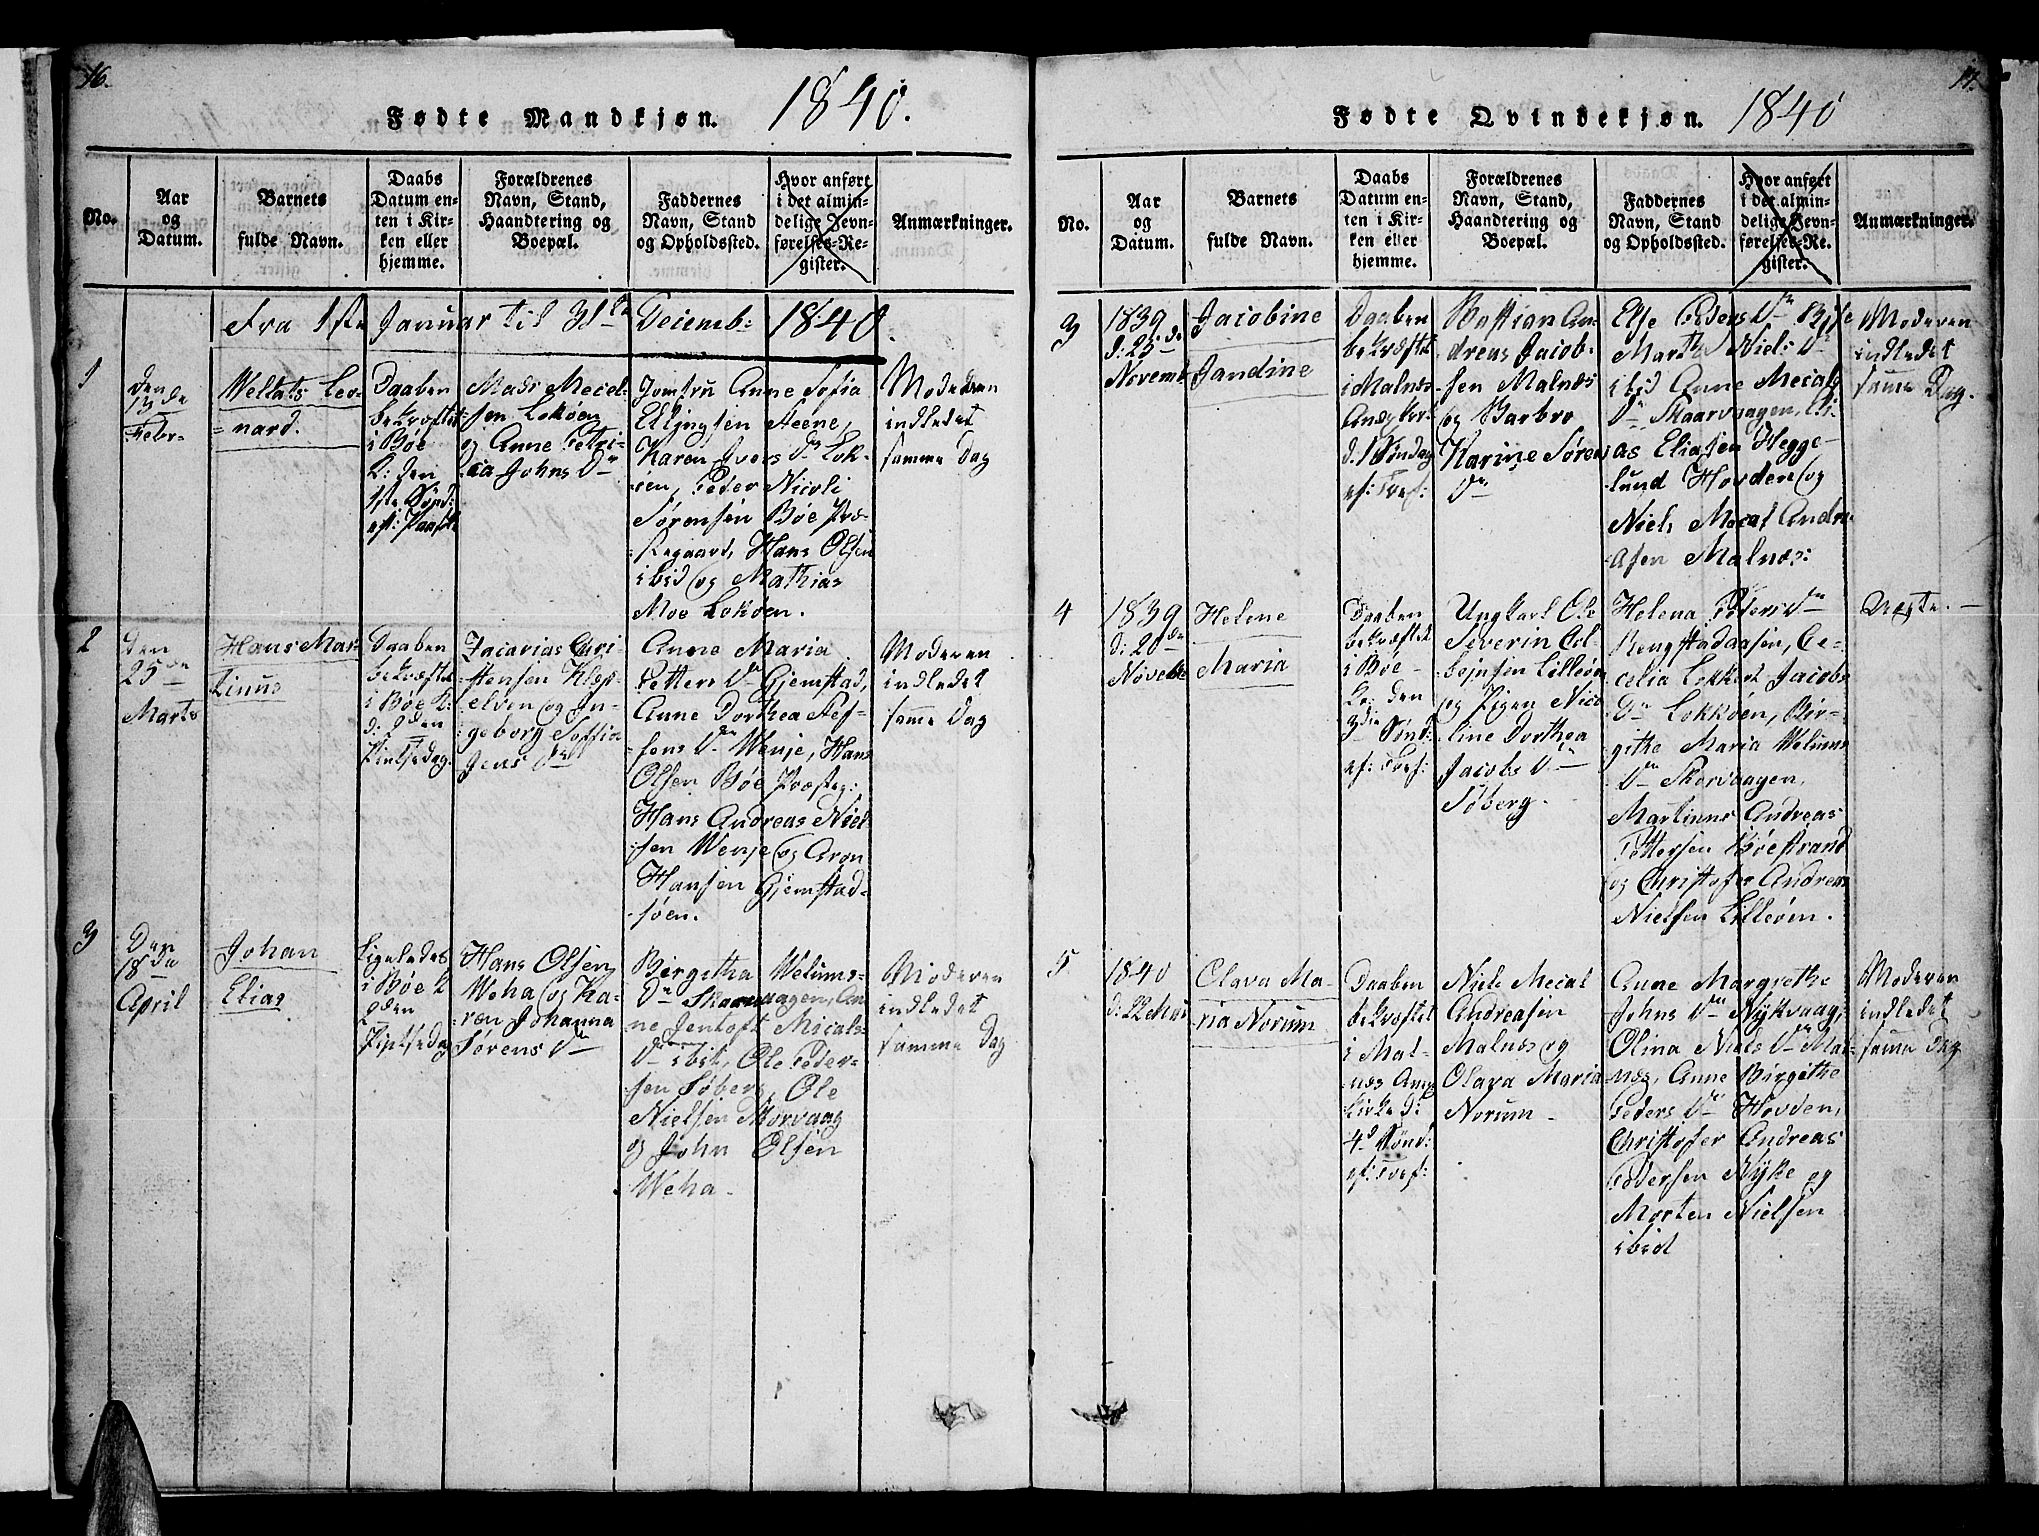 16.
Fødte Mandkjøn. 1840.
No.
Aar
og
Datum.
Barnets
fulde Navn.
Daabs
Datum en-
ten i Kir-
ken eller
hjemme.
Forældrenes
Navn, Stand,
Haandtering og
Boepæl.
Faddernes
Navn, Stand
og Opholdssted.
Hvor anført
i det almin-
delige Jevn-
førelses-Re-
gister.
Anmærkninger.
Fra 1ste Januar til 31te Decemb: 1840.
1
den
13de
Febr.
Weltats Leo-
nard.
Daaben
bekræftet
i Bøe
K: den
1ste Sønd:
eft: Paaske
Mads Mecel-
sen Lokøen
og Anne Petri-
cia Johns Dr
Jomfru Anne Sofia
Ellingsen Steene,
Karen Ivers Dr Lok-
øen, Peder Nicoli
Sørensen Bøe Præ-
stegaard, Hans Olsen
ibid og Mathias
Moe Lokøen.
Moderen
indledet
samme Dag
2
Den
25de
Marts
Hans Mar-
tinus
Daaben
bekræftet
i Bøe K:
d: 2den
Pintsedag.
Zacarias Chri-
stensen Klep-
elven og In-
geborg Soffia
Jens Dr
Anne Maria
Petters Dr Gjemstad,
Anne Dorthea Jef-
sens Dr Wenje, Hans
Olsen Bøe Præsteg:
Hans Andreas Niel-
sen Wenje og Aron
Hansen Gjemstad-
søen.
Moderen
indledet
samme Dag
3
Den
18de
April
Johan
Elias
Ligeledes
i Bøe K
2den
Pintsedag
Hans Olsen
Weha og Ka-
ren Johanna
Sørens Dr
Birgitha Welums-
Dr Skaarvaagen, An-
ne Jentoft Micals-
Dr ibit, Ole Peder-
sen Søberg, Ole
Nielsen Skorvaag
og John Olsen
Weha.
Moderen
indledet
samme Dag
17.
Fødte Qvindekjøn. 1840
No.
Aar
og
Datum.
Barnets
fulde Navn.
Daabs
Datum en-
ten i Kir-
ken eller
hjemme.
Forældrenes
Navn, Stand,
Haandtering og
Boepæl.
Faddernes
Navn, Stand
og Opholdssted.
Hvor anført
i det almin-
delige Jevn-
førelses-Re-
gister.
Anmærkninger.
3
1839
d: 25de
Novemb
Jacobine
Jandine
Daaben
bekræftet
i Malnæs
Anexkir:
d. 1 Søndag
ef: Tref:
Bastian An-
dreas Jacob-
sen Malnæs
og Barbro
Karine Sørens
Dr
Else Peders Dr
Marth Niels Dr
ibid Anne Mecals
Dr Skaarvaagen, Eli-
as Eliasen Hegge-
lund Hovden og
Niels Mecal Andre-
asen Malnæs:
Moderen
indledet
samme Dag.
4
1839
d: 20de
Novembr
Helene
Maria
Daaben
bekræftet
i Bøe
K: den
3die Sønd:
ef: Tref:
Ungkarl Ole
Severin Col-
bejnsen Lilleøen
og Pigen Nico-
line Dorthea
Jacobs Dr
Søberg.
Helena Peders Dr
Ringstadaasen, Ce-
celia Lekkert Jacobs
Dr Lokkøen, Bir-
githe Maria Welums
Dr Skorvaagen,
Martinus Andreas
Pettersen Bøestrand
og Christofer Andreas
Nielsen Lilleøen.
Uægte. —
5
1840
d: 22 Mai
Olava Ma-
ria Norum
Daaben
bekræftet
i Mal-
næs Anex
kirke d:
4de Sønd:
ef: Tref:
Niels Mecal
Andreasen
Malnæs og
Olava Maria
Norum
Anne Margrethe
Johns Dr Nykvaag,
Olina Niels Dr Mal-
næs, Anne Birgithe
Peders Dr Hovden,
Christofer Andreas
Pedersen Nyke og
Morten Nielsen
ibid
Moderen
indledet
samme Dag